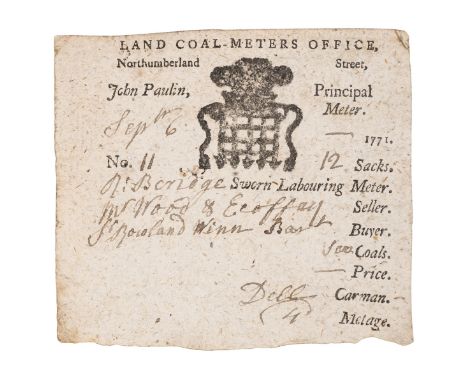 LAND COAL-METERS OFFICE,
Northumberland Street,
John Paulin, Principal
Meter.
Sepr 6 — 1771.
No. 11 12 Sacks.
Rt Beridge Sworn Labouring Meter.
Mr Ward & Ecoffay Seller.
Sr Rowland Winn Bart Buyer.
Coals.
— Price.
Dell Carman.
4 Metage.